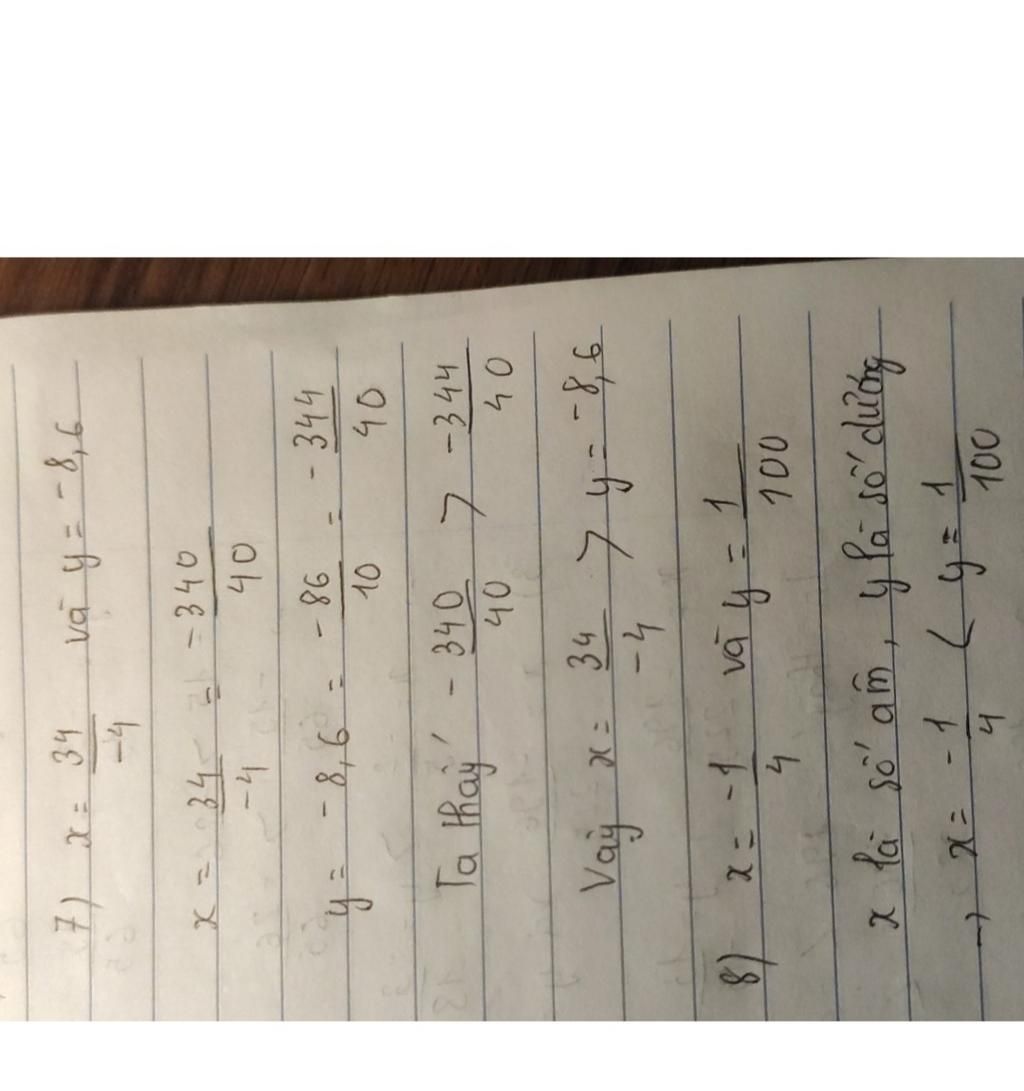 7) x = 34/-4 và y = -8,6
x = 34/-4 = -340/40
y = -8,6 = -86/10 = -344/40
Ta thấy -340/40 > -344/40
Vậy x = 34/-4 > y = -8,6
8) x = -1/4 và y = 1/100
x là số âm, y là số dương
→ x = -1/4 < y = 1/100